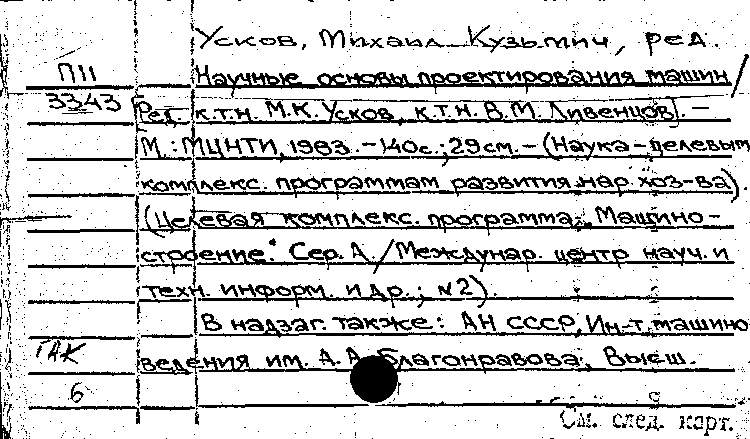 Усков, Михаил Кузьмич, ред.
П11
3343
Научные основы проектирования машин/
[Ред. к.т.н. М.К. Усков, к.т.н. В.М. Ливенцов]. –
М.: МЦНТИ, 1983. – 140с.; 29см. – (Наука – целевым
комплекс. программам развития нар. хоз-ва).
(Целевая комплекс. программа „Машино-
строение“ Сер. А. / Междунар. центр науч. и
техн. информ. и др.; №2).
В надзаг. также: АН СССР, Ин-т машино
ведения им. А.А. Благонравова, Высш.
ГАК
6
См. след. карт.